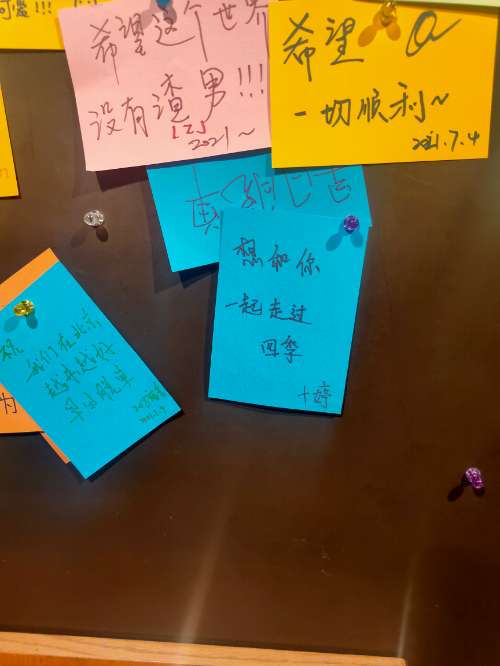 可爱!!!
希望这个世界
没有渣男!!!
[ZJ
2021~
希望
一切顺利~
2021.7.4
想和你
一起走过
四季
十婷
祝
我们在北京
越来越好
早日脱单
为